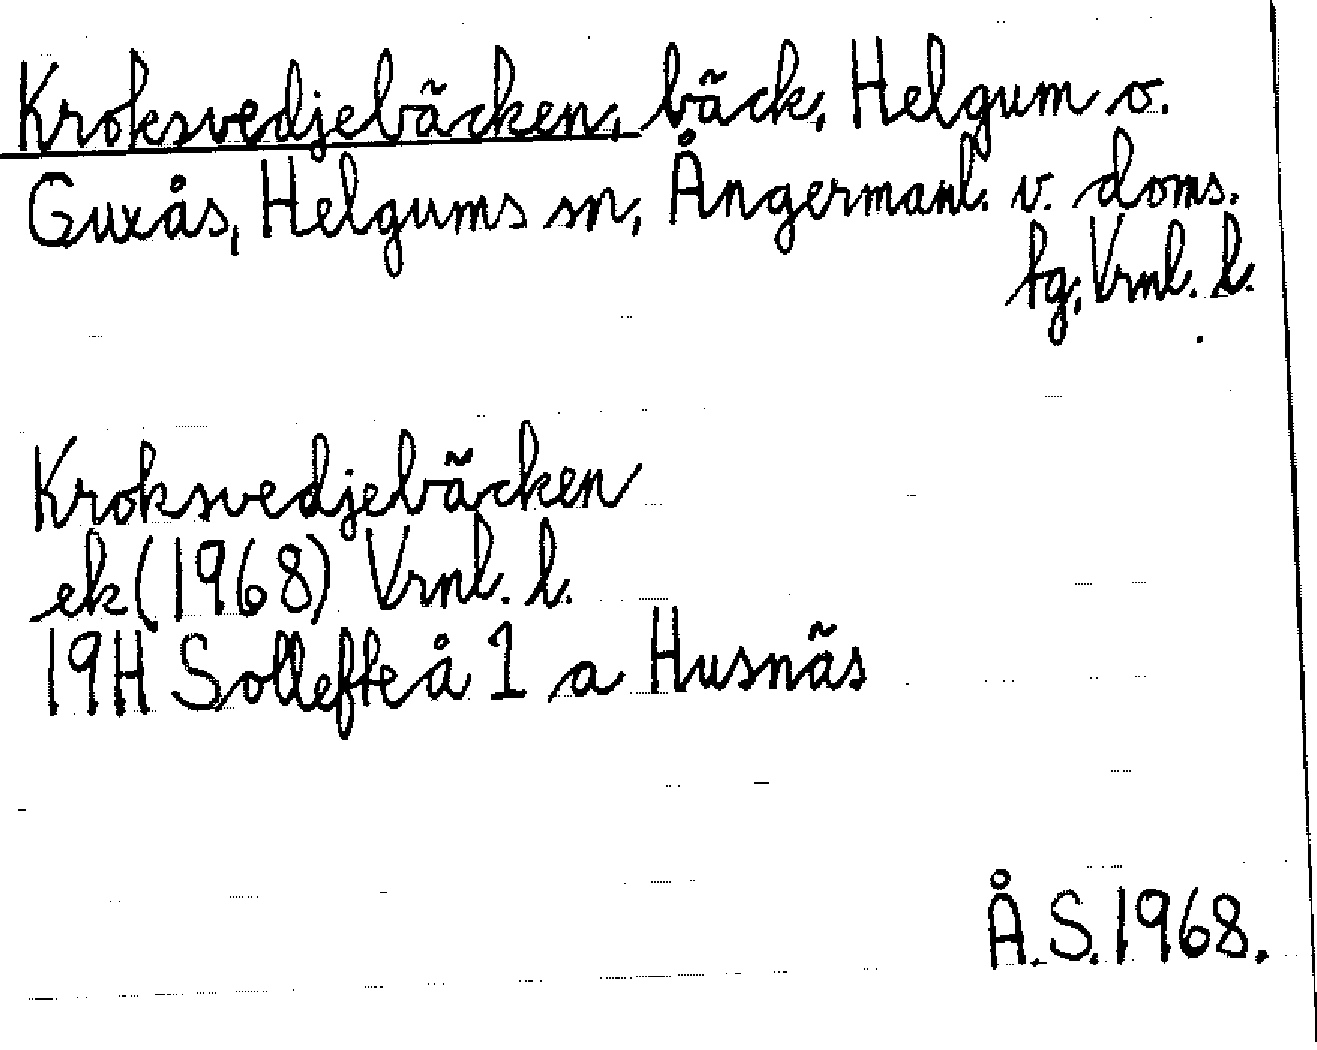 Kroksvedjebäcken, bäck, Helgum o.
Guxås, Helgums sn, Ångermanl. v. doms.
tg, Vrnl. l.
Kroksvedjebäcken
ek (1968) Vrnl. l.
19H Sollefteå 1 a Husnäs
Å.S. 1968.